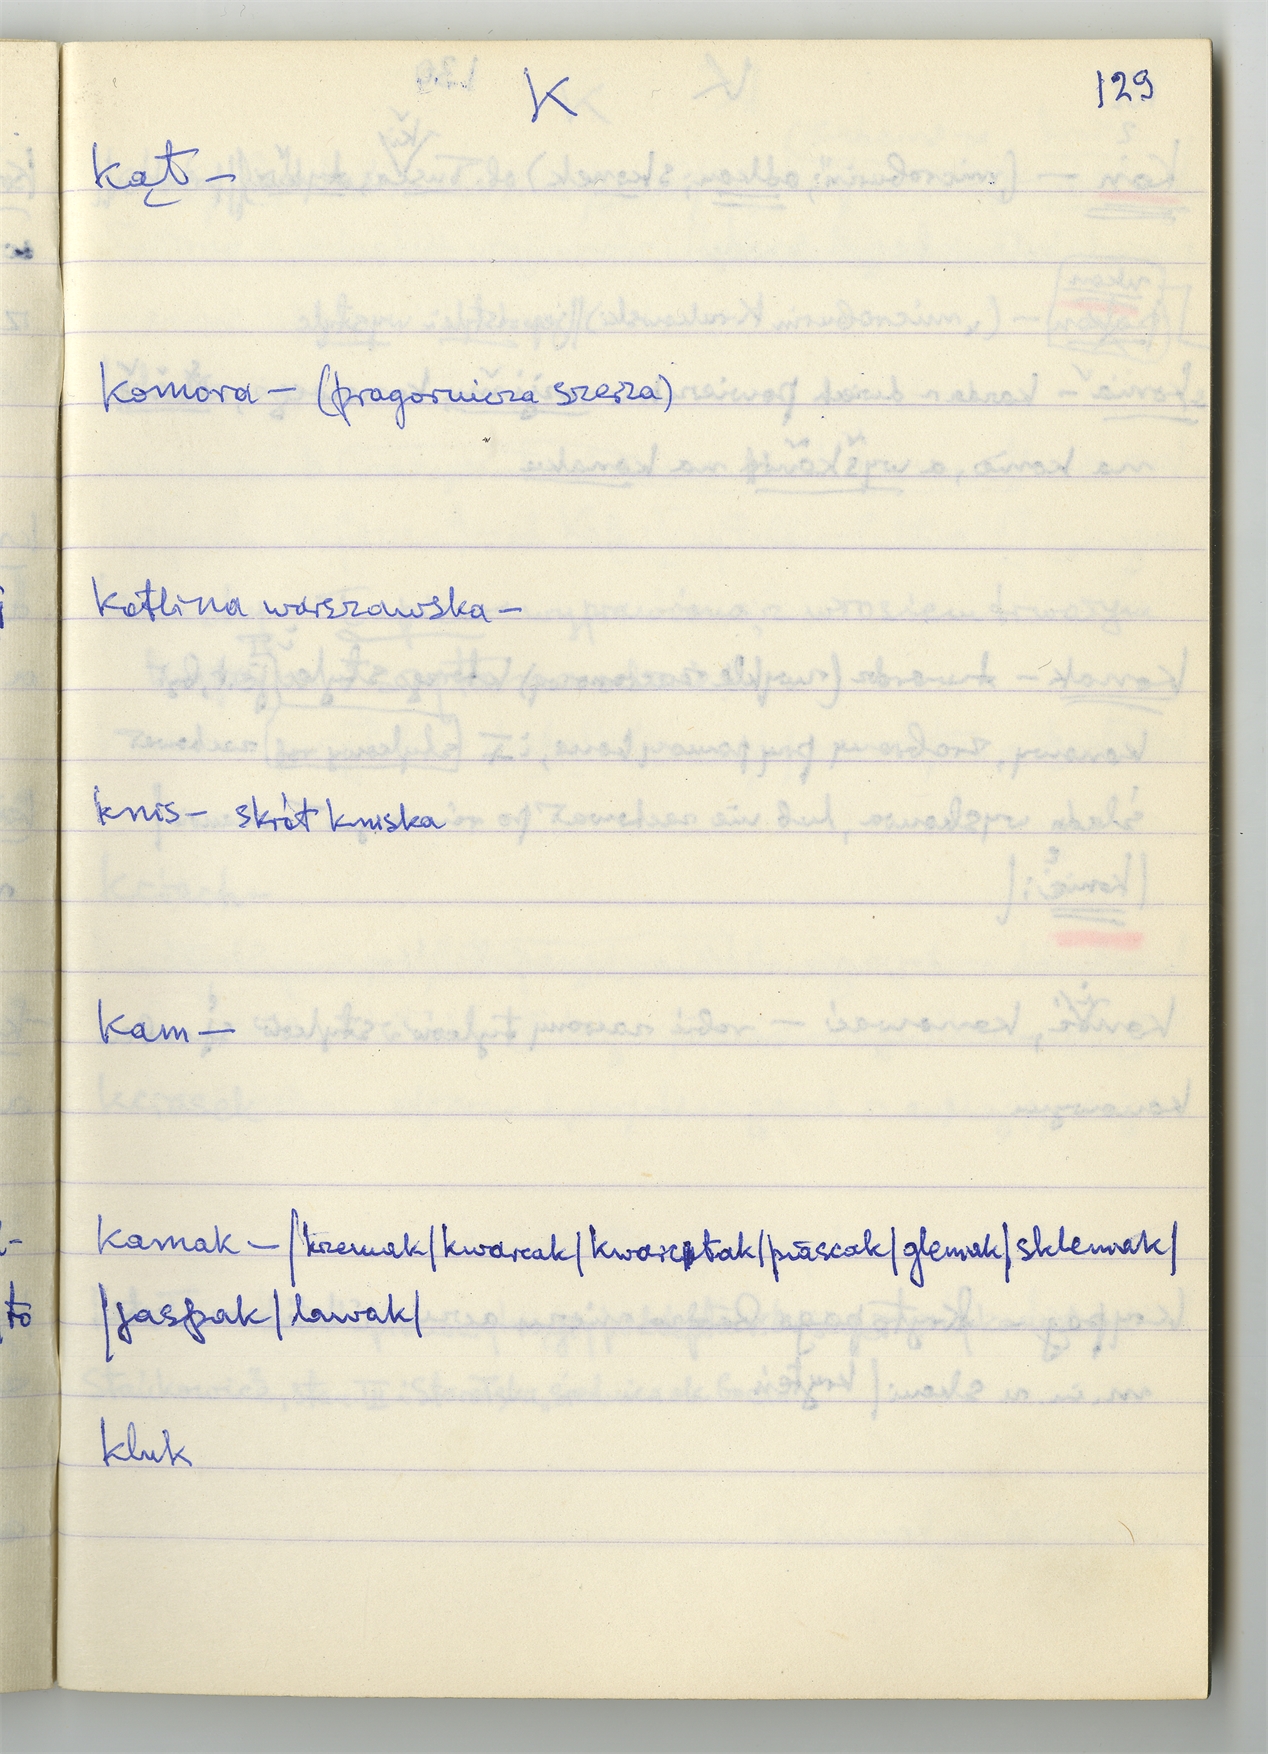 K 129
kąt —
komora — (pragórnicza szersza)
kotlina warszawska —
knis — skrót kniska
kam —
kamak — |krzemak|kwarcak|kwarcytak|piascak|glemak|sklemak|
|jaspak|lawak|
kluk